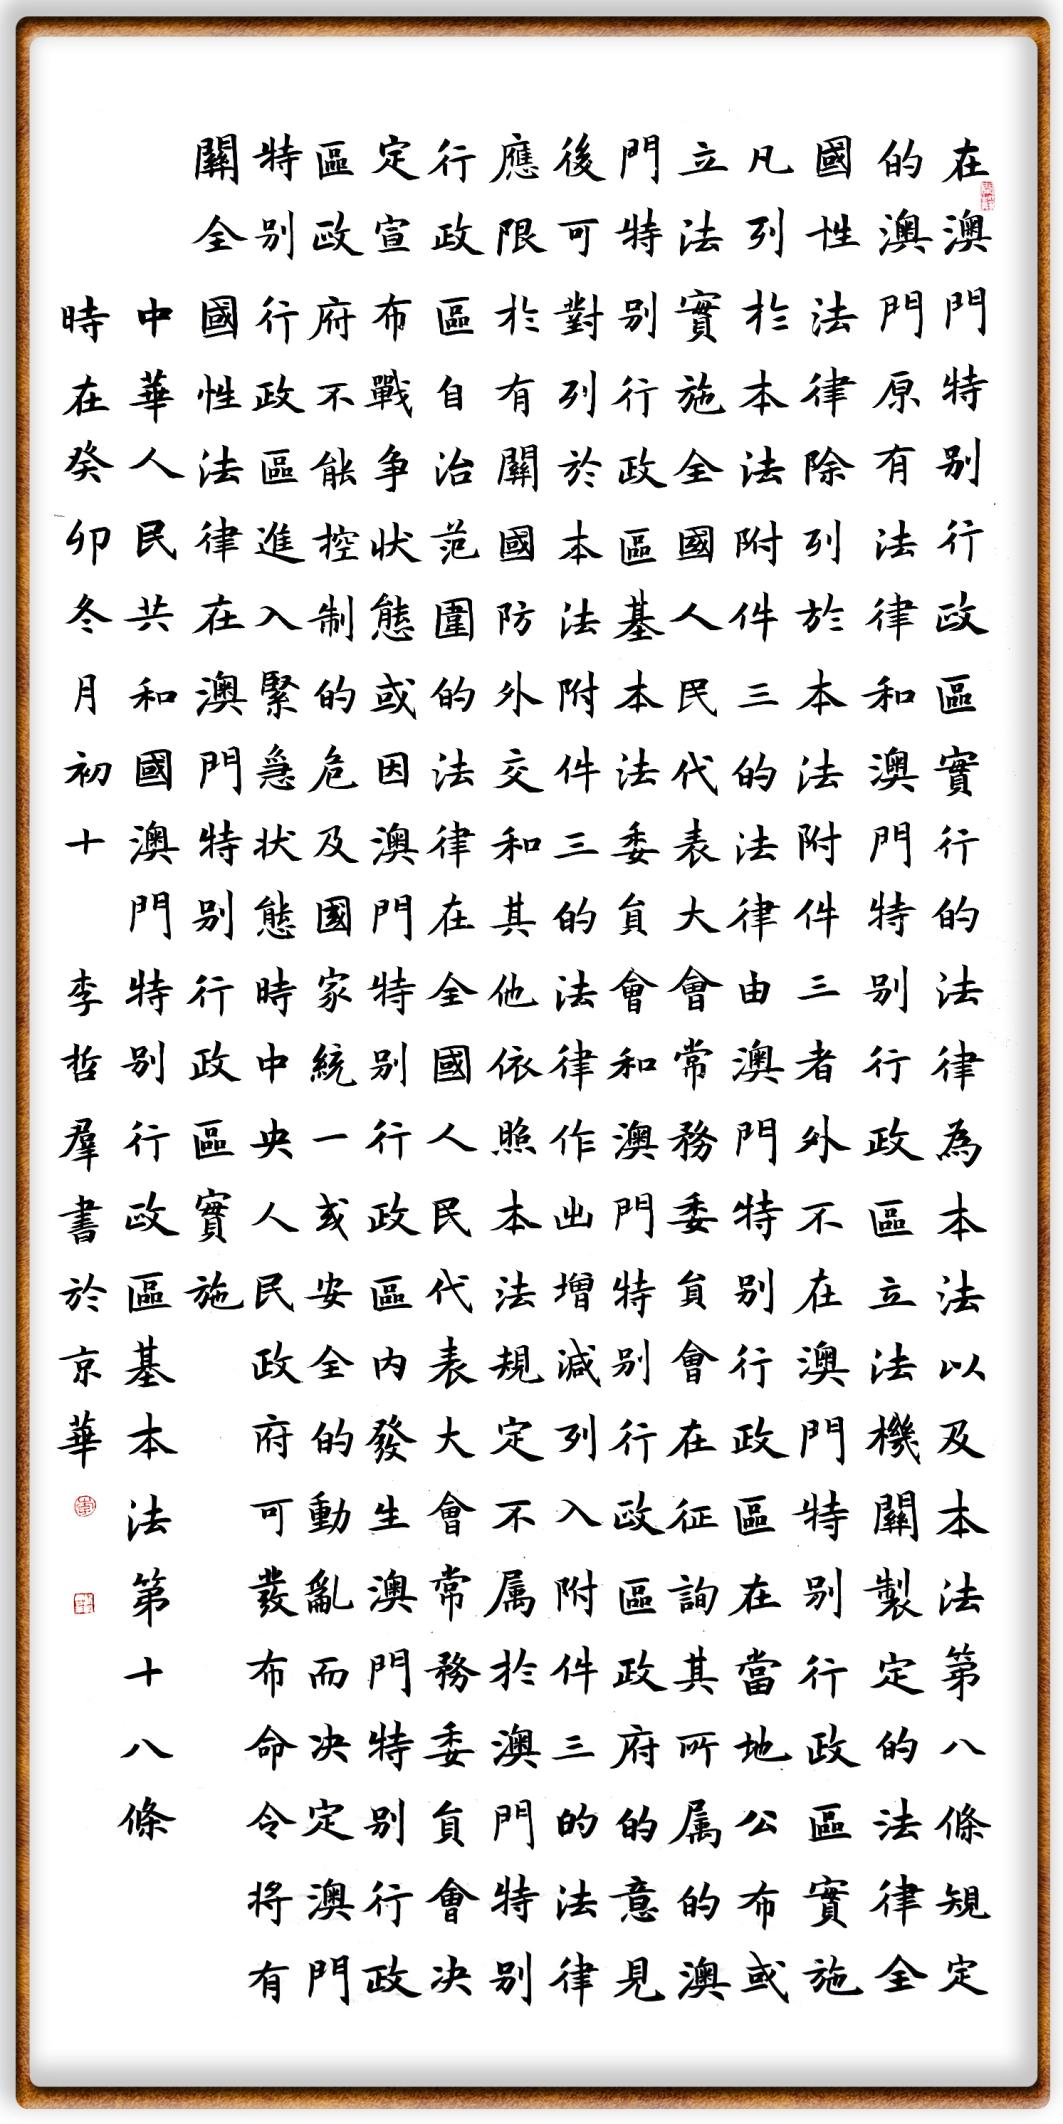 在澳門特别行政區實行的法律為本法以及本法第八條規定
的澳門原有法律和澳門特别行政區立法機關製定的法律全
國性法律除列於本法附件三者外不在澳門特别行政區實施
凡列於本法附件三的法律由澳門特别行政區在當地公布或
立法實施全國人民代表大會常務委員會在征詢其所属的澳
門特别行政區基本法委員會和澳門特别行政區政府的意見
後可對列於本法附件三的法律作出增减列入附件三的法律
應限於有關國防外交和其他依照本法規定不属於澳門特别
行政區自治范圍的法律在全國人民代表大會常務委員會决
定宣布戰争狀態或因澳門特别行政區内發生澳門特别行政
區政府不能控制的危及國家統一或安全的動亂而决定澳門
特别行政區進入緊急状態時中央人民政府可發布命令将有
關全國性法律在澳門特别行政區實施
中華人民共和國澳門特别行政區基本法第十八條
時在癸卯冬月初十 李哲羣書於京華